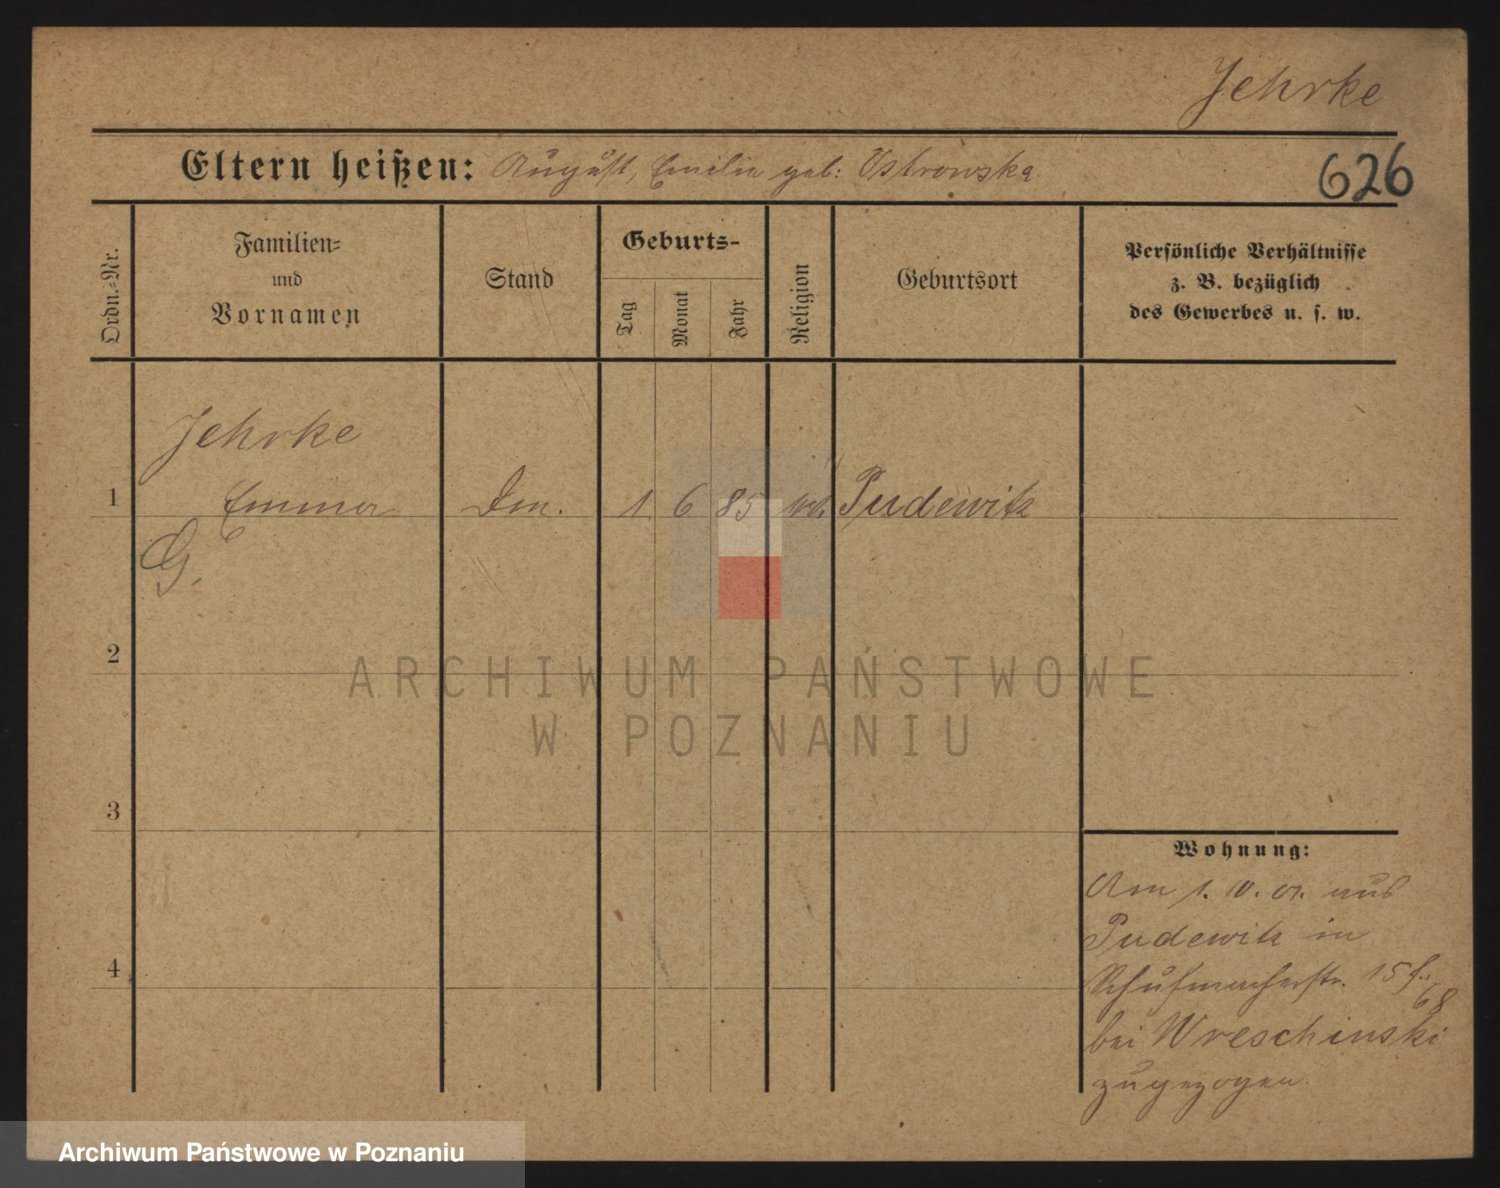 Jehrke
Eltern heißen: August, Emilie geb: Ostrowska
626
Ordn.=Nr.
Familien=
und
Vornamen
Stand
Geburts-
Tag
Monat
Jahr
Religion
Geburtsort
Persönliche Verhältnisse
z. B. bezüglich
des Gewerbes u. s. w.
Jehrke
1 Emma Dm. 1 6 85 Pudewitz
G.
2
3
4
Wohnung:
Am 1. 10. 01. aus
Pudewitz in
Schuhmacherstr. 15
68
bei Wreschinski
zugezogen.
ARCHIWUM PAŃSTWOWE
W POZNANIU
Archiwum Państwowe w Poznaniu